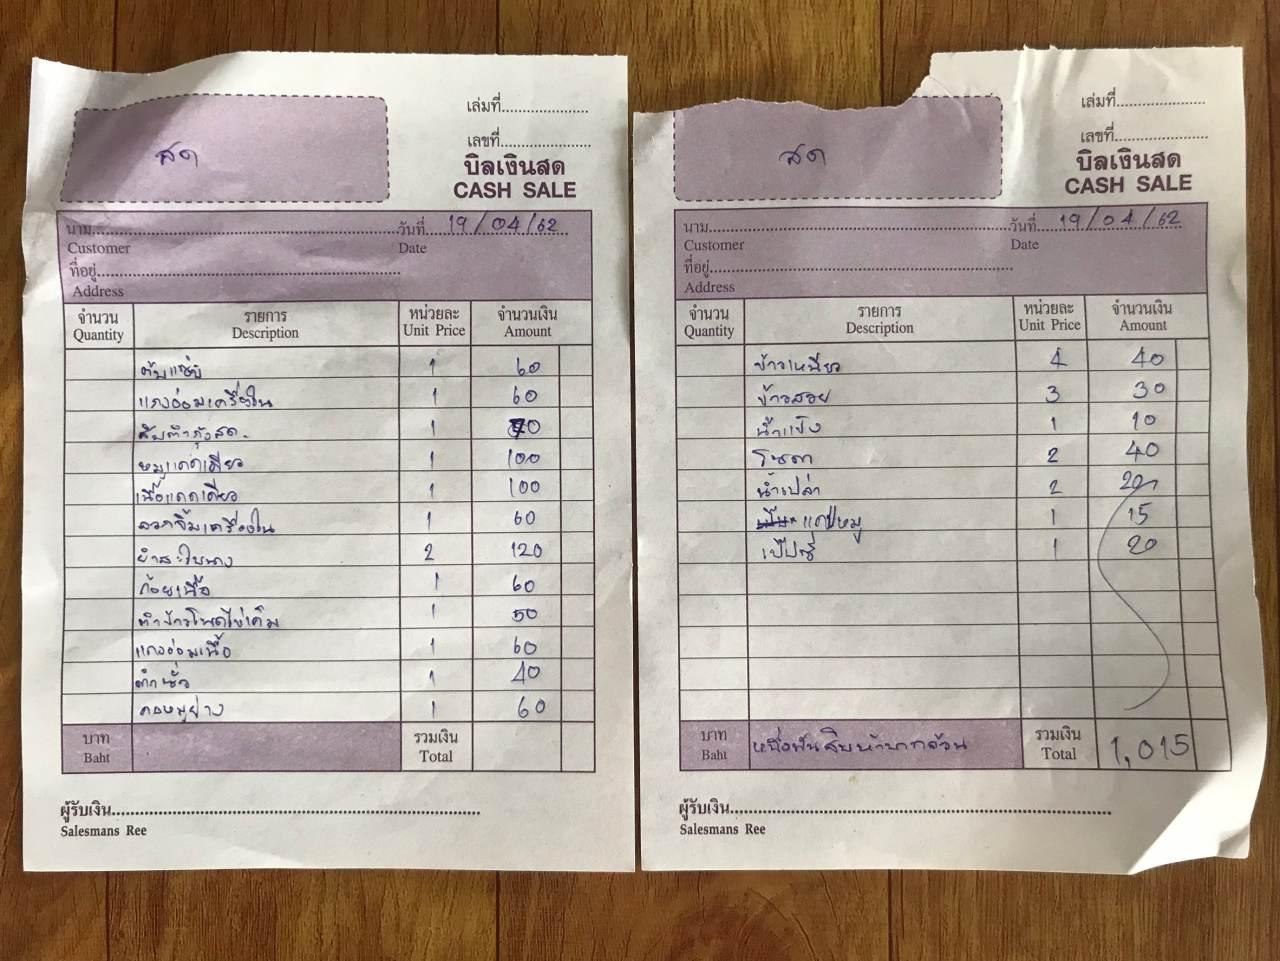 สด
เล่มที่
เลขที่
บิลเงินสด
CASH SALE
นาม วันที่ 19/04/62
Customer Date
ที่อยู่
Address
จำนวน รายการ หน่วยละ จำนวนเงิน
Quantity Description Unit Price Amount
ตับแซ่บ 1 60
แกงอ่อมเครื่องใน 1 60
ส้มตำกุ้งสด 1 70
หมูแดดเดียว 1 100
เนื้อแดดเดียว 1 100
ลวกจิ้มเครื่องใน 1 60
2 120
ก้อยเนื้อ 1 60
ตำข้าวโพดไข่เค็ม 1 50
แกงอ่อมเนื้อ 1 60
ตำถั่ว 1 40
คอหมูย่าง 1 60
บาท รวมเงิน
Baht Total
ผู้รับเงิน
Salesmans Ree
สด
เล่มที่
เลขที่
บิลเงินสด
CASH SALE
นาม วันที่ 19/04/62
Customer Date
ที่อยู่
Address
จำนวน รายการ หน่วยละ จำนวนเงิน
Quantity Description Unit Price Amount
ข้าวเหนียว 4 40
ข้าวสวย 3 30
น้ำแข็ง 1 10
โซดา 2 40
น้ำเปล่า 2 20
แคปหมู 1 15
เป๊ปซี่ 1 20
บาท หนึ่งพันสิบห้าบาทถ้วน รวมเงิน 1,015
Baht Total
ผู้รับเงิน
Salesmans Ree